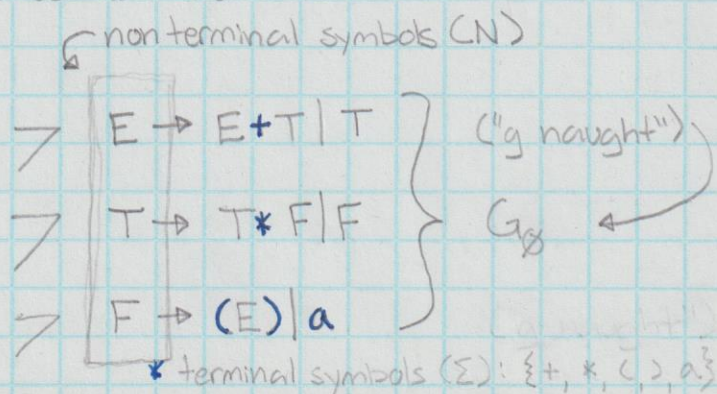 nonterminal symbols (N)
> E → E+T | T ("g naught")
> T → T* F | F G∅
> F → (E) | a
("g naught")
* terminal symbols (Σ): {+, *, (, ), a}